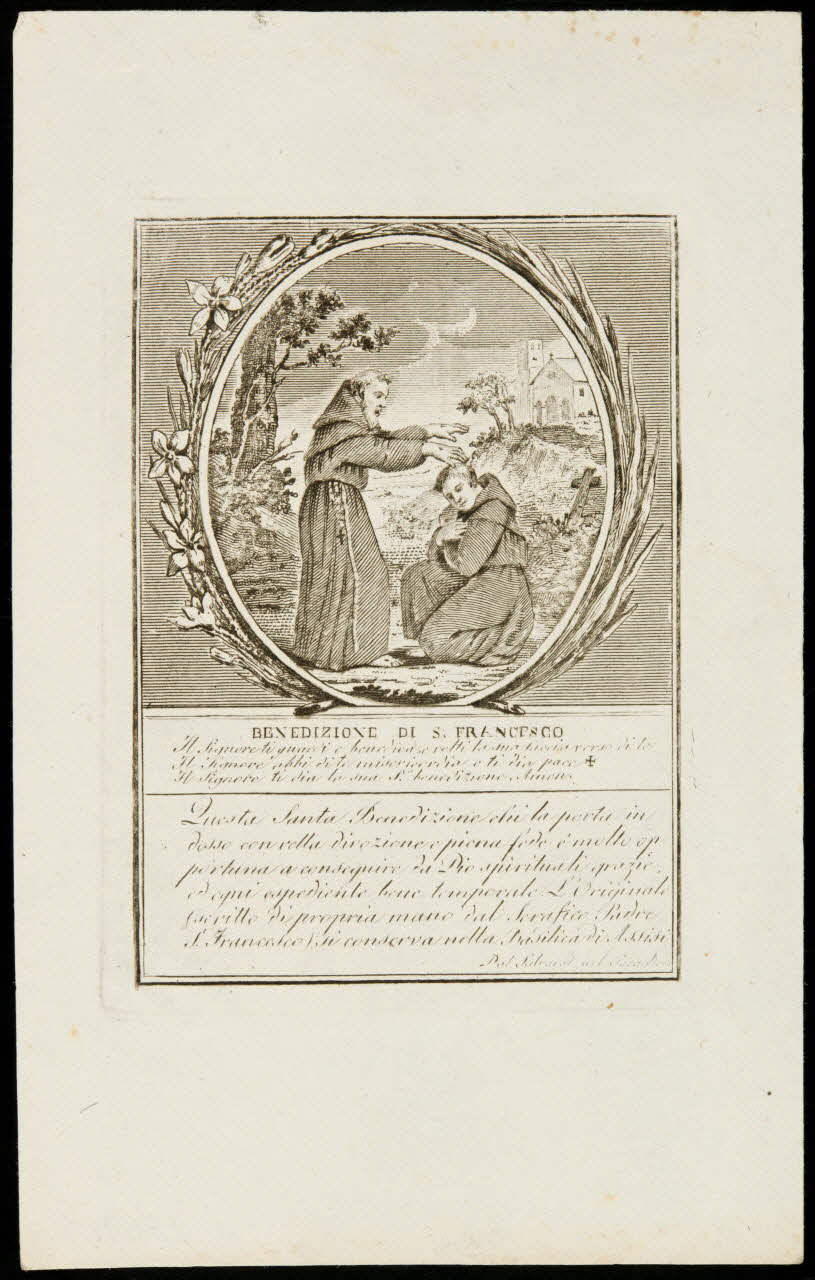 BENEDIZIONE DI S. FRANCESCO
Il Signore ti guardi e benedica, e volti la sua faccia verso di te
Il Signore abbi di te misericordia e ti dia pace ✠
Il Signore ti dia la sua S. benedizione Amen.
Questa Santa Benedizione chi la porta in
dosso con retta divozione e piena fede è molto op
portuna a conseguire da Dio spirituali grazie,
ed ogni espediente bene temporale. L'Originale
(scritto di propria mano dal Serafico Padre
S. Francesco) si conserva nella Basilica di Assisi